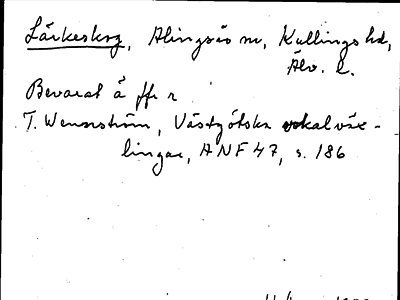 Lärkeskog, Alingsås sn, Kullings hd,
Älv. l.
Bevarat ä ffr r
T. Wennström, Västgötska vokalväx-
lingar, ANF 47, s. 186